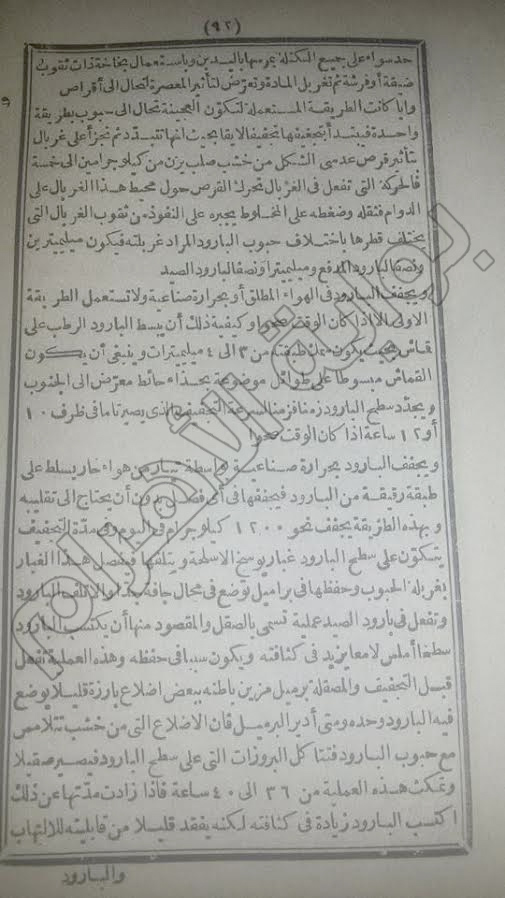 (٩٢)
حد سواء على جميع الكتلة برميها باليدين وباستعمال بخاخة ذات ثقوب
ضيقة أو فرشة ثم تغربل المادة وتعرّض لتأثير المعصرة لتحال الى أقراص
وايا كانت الطريقة المستعملة لتكوّن العجينة تحال الى حبوب بطريقة
واحدة فيبتدأ بتجفيفها تجفيفا لايقا بحيث انها تتبدد ثم تجزأ على غربال
بتأثير قرص عدسى الشكل من خشب صلب يزن من كيلوجرامين الى خمسة
فالحركة التى تفعل فى الغربال تحرك القرص حول محيط هذا الغربال على
الدوام فثقله وضغطه على المخلوط يجبره على النفوذ من ثقوب الغربال التى
يختلف قطرها باختلاف حبوب البارود المراد غربلته فيكون ميليميترين
ونصفا لبارود المدفع وميليميترا ونصفا لبارود الصيد
ويجفف البارود فى الهواء المطلق أو بحرارة صناعية ولا تستعمل الطريقة
الاولى الا اذا كان الوقت صحوا وكيفية ذلك أن يبسط البارود الرطب على
قماش بحيث يكون سمك طبقته من ٣ الى ٤ ميليميترات وينبغى أن يكون
القماش مبسوطا على طوائل موضوعة بحذاء حائط معرّض الى الجنوب
ويجدّد سطح البارود زمنا فزمنا لسرعة التجفيف الذى يصير تاما فى ظرف ١٠
أو ١٢ ساعة اذا كان الوقت صحوا
ويجفف البارود بحرارة صناعية بواسطة تيار من هواء حار يسلط على
طبقة رقيقة من البارود فيجففها فى أى فصل بدون أن يحتاج الى تقليبه
وبهذه الطريقة يجفف نحو ١٢٠٠ كيلوجرام فى اليوم وفى مدّة التجفيف
يتكوّن على سطح البارود غبار يوسخ الاسلحة ويتلفها فيفصل هذا الغبار
بغربلة الحبوب وحفظها فى براميل توضع فى محال جافة جدا والا تلف البارود
وتفعل فى بارود الصيد عملية تسمى بالصقل والمقصود منها أن يكتسب البارود
سطحا أملس لامعا يزيد فى كثافته ويكون سببا فى حفظه وهذه العملية تفعل
قبل التجفيف والمصقلة برميل مزين باطنه ببعض اضلاع بارزة قليلا يوضع
فيه البارود وحده ومتى أدير البرميل فان الاضلاع التى من خشب تتلامس
مع حبوب البارود فتتآكل البروزات التى على سطح البارود فيصير صقيلا
وتمكث هذه العملية من ٣٦ الى ٤٠ ساعة فاذا زادت مدّتها عن ذلك
اكتسب البارود زيادة فى كثافته لكنه يفقد قليلا من قابليته للالتهاب
والبارود